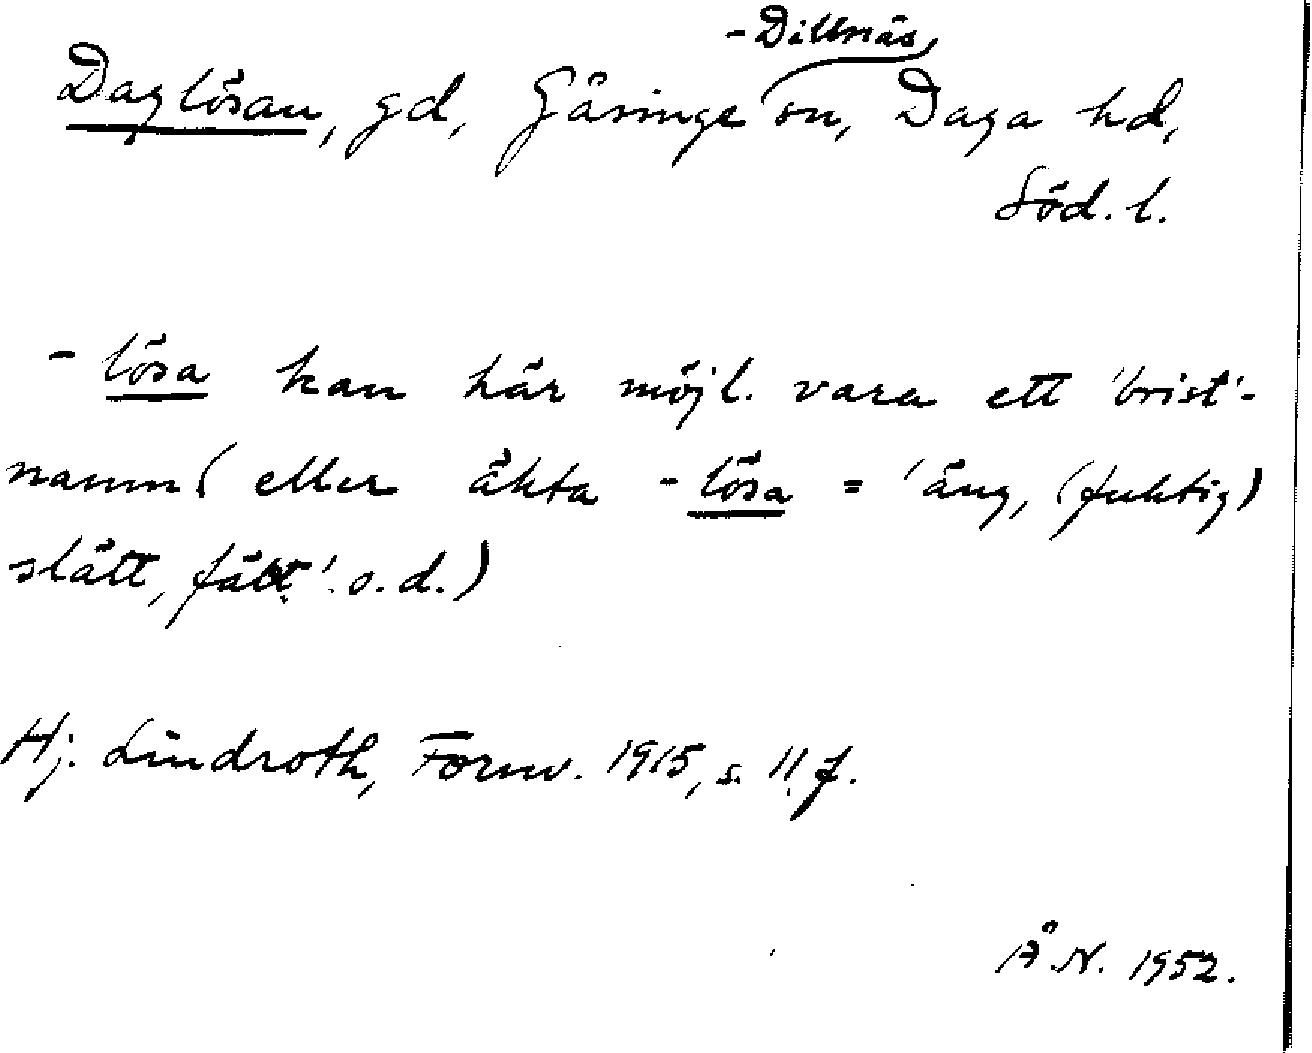 Daglösan, gd, Gåsinge -Dillnäs, sn, Daga hd,
Söd. l.
- lösa kan här möjl. vara ett 'brist'-
namn (eller äkta - lösa = 'äng, (fuktig)
slått, fält'. o.d.)
Hj. Lindroth, Fornv. 1915, s. 11 f.
Å.N. 1952.